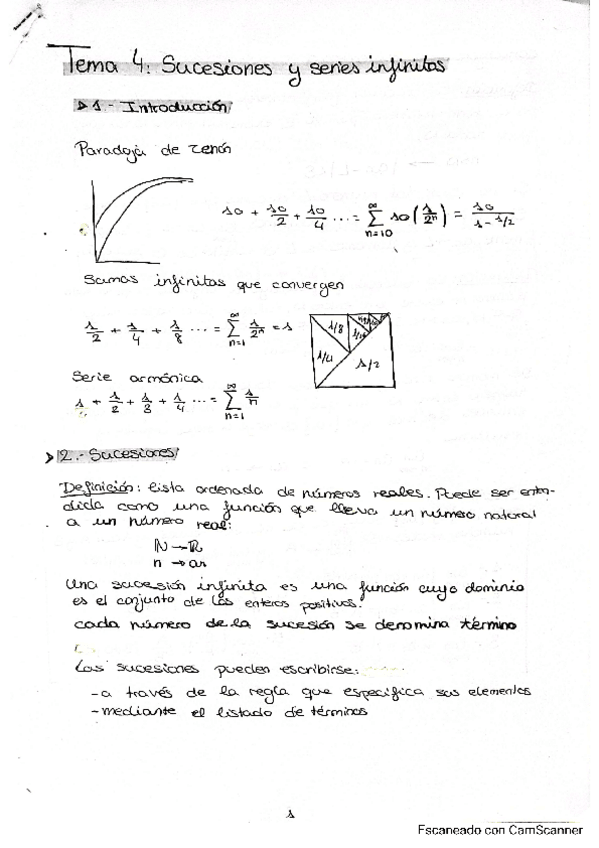 Tema 4: Sucesiones y series infinitas
▷ 1.- Introducción
Paradoja de Zenón
10 + 10/2 + 10/4 ... = ∑_{n=10}^{∞} 10(1/2ⁿ) = 10/(1-1/2)
Sumas infinitas que convergen
1/2 + 1/4 + 1/8 ... = ∑_{n=1}^{∞} 1/2ⁿ = 1
1/8
1/4
1/2
Serie armónica
1 + 1/2 + 1/3 + 1/4 ... = ∑_{n=1}^{∞} 1/n
> 2.- Sucesiones
Definición: lista ordenada de números reales. Puede ser enten-
dida como una función que lleva un número natural
a un número real:
ℕ → ℝ
n → an
Una sucesión infinita es una función cuyo dominio
es el conjunto de los enteros positivos.
cada número de la sucesión se denomina término
Las sucesiones pueden escribirse:
- a través de la regla que especifica sus elementos
- mediante el listado de términos
1
Escaneado con CamScanner